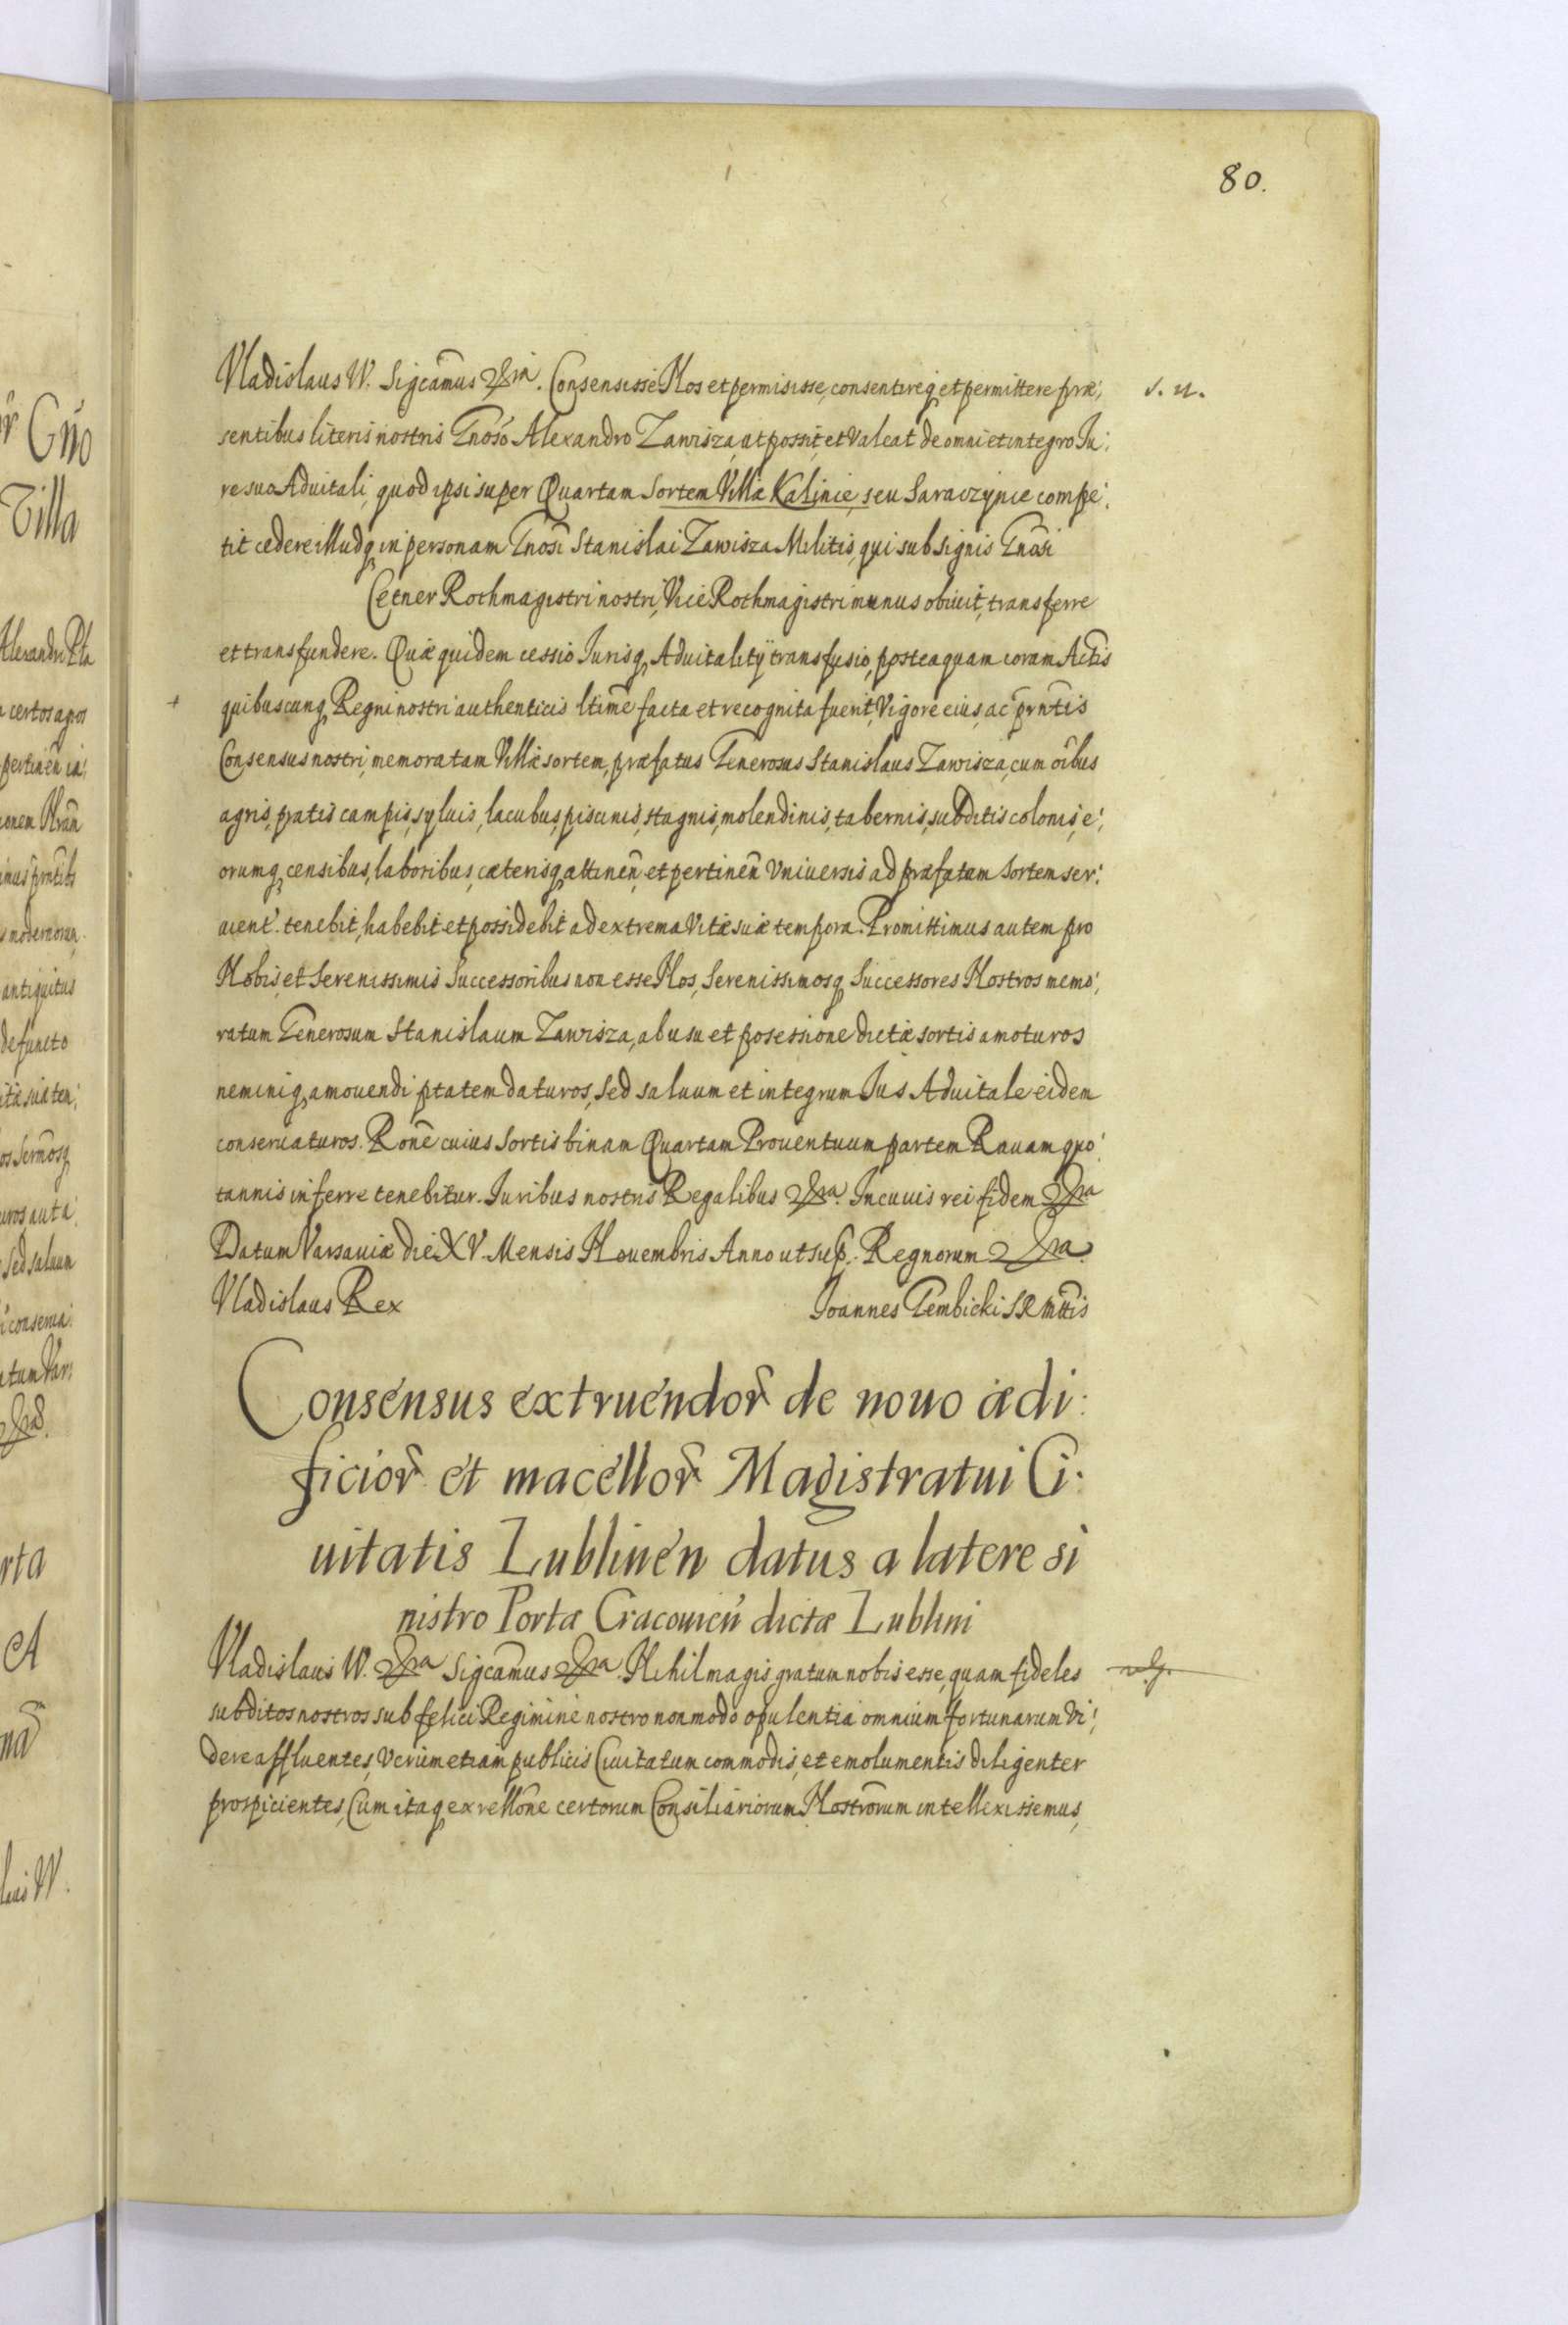 80.
Vladislaus IV. Sigcamus &ra. Consensisse Nos et permisisse, consentireq, et permittere præ:
s. n.
sentibus literis nostris Gnoso Alexandro Zawisza, ut possit, et valeat de omni et integro Ju:
re suo Aduitali, quod ipsi super Quartam Sortem Villæ Kalinie, seu Saraczynce compe:
tit cedere illudq, in personam Gnosi Stanislai Zawisza Militis, qui sub signis Gnosi
Cetner Rothmagistri nostri, Vice Rothmagistri munus obiuit, transferre
et transfundere. Quæ quidem cessio Jurisq, Aduitalitÿ transfusio, posteaquam coram Actis
quibuscunq, Regni nostri authenticis ltime facta et recognita fuerit, Vigore eius, ac prntis
Consensus nostri, memoratam Villæ sortem, præfatus Generosus Stanislaus Zawisza, cum oibus
agris, pratis campis, syluis, lacubus, piscinis, stagnis, molendinis, tabernis, subditis colonis, e:
orumq, censibus, laboribus, cæterisq, attinen, et pertinen Vniuersis ad præfatam Sortem ser:
uient. tenebit, habebit et possidebit ad extrema Vitæ suæ tempora. Promittimus autem pro
Nobis, et Serenissimis Successoribus non esse Nos, Serenissimosq, Successores Nostros memo:
ratum Generosum Stanislaum Zawisza, ab usu et posessione dictæ sortis amoturos
neminiq, amouendi ptatem daturos, Sed saluum et integrum Jus Aduitale eidem
conseruaturos. Rone cuius Sortis binam Quartam Prouentuum partem Rauam quo:
tannis inferre tenebitur. Juribus nostris Regalibus &ra. In cuius rei fidem &ra
Datum Varsauiæ die XV. Mensis Nouembris Anno ut sup. Regnorum &ra.
Vladislaus Rex Joannes Gembicki SR Mttis
Consensus extruendor de nouo ædi:
ficior et macellor Magistratui Ci:
uitatis Lublinen datus a latere si
nistro Portæ Cracouien dictæ Lublini
Vladislaus IV. &ra Sigcamus &ra. Nihil magis gratum nobis esse, quam fideles
subditos nostros sub felici Regimine nostro non modo opulentia omnium fortunarum vi:
dere affluentes, Verum etiam publicis Ciuitatum commodis, et emolumentis diligenter
prospicientes, Cum itaq, ex rellone certorum Consiliariorum Nostrorum intellexissemus,